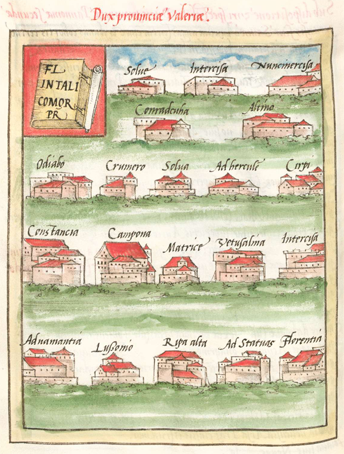 Dux prouinciæ Valeriæ.
FL
INTALI
COMOR
PR
Solue Intercisa Nunemercisa
Contradcuha Altino
Odiabo Crumero Solua Ad herculē Cirpi
Constancia Campona Matrice Vetusalina Intercisa
Adnamantia Lussonio Ripa alta Ad Statuas Florentia